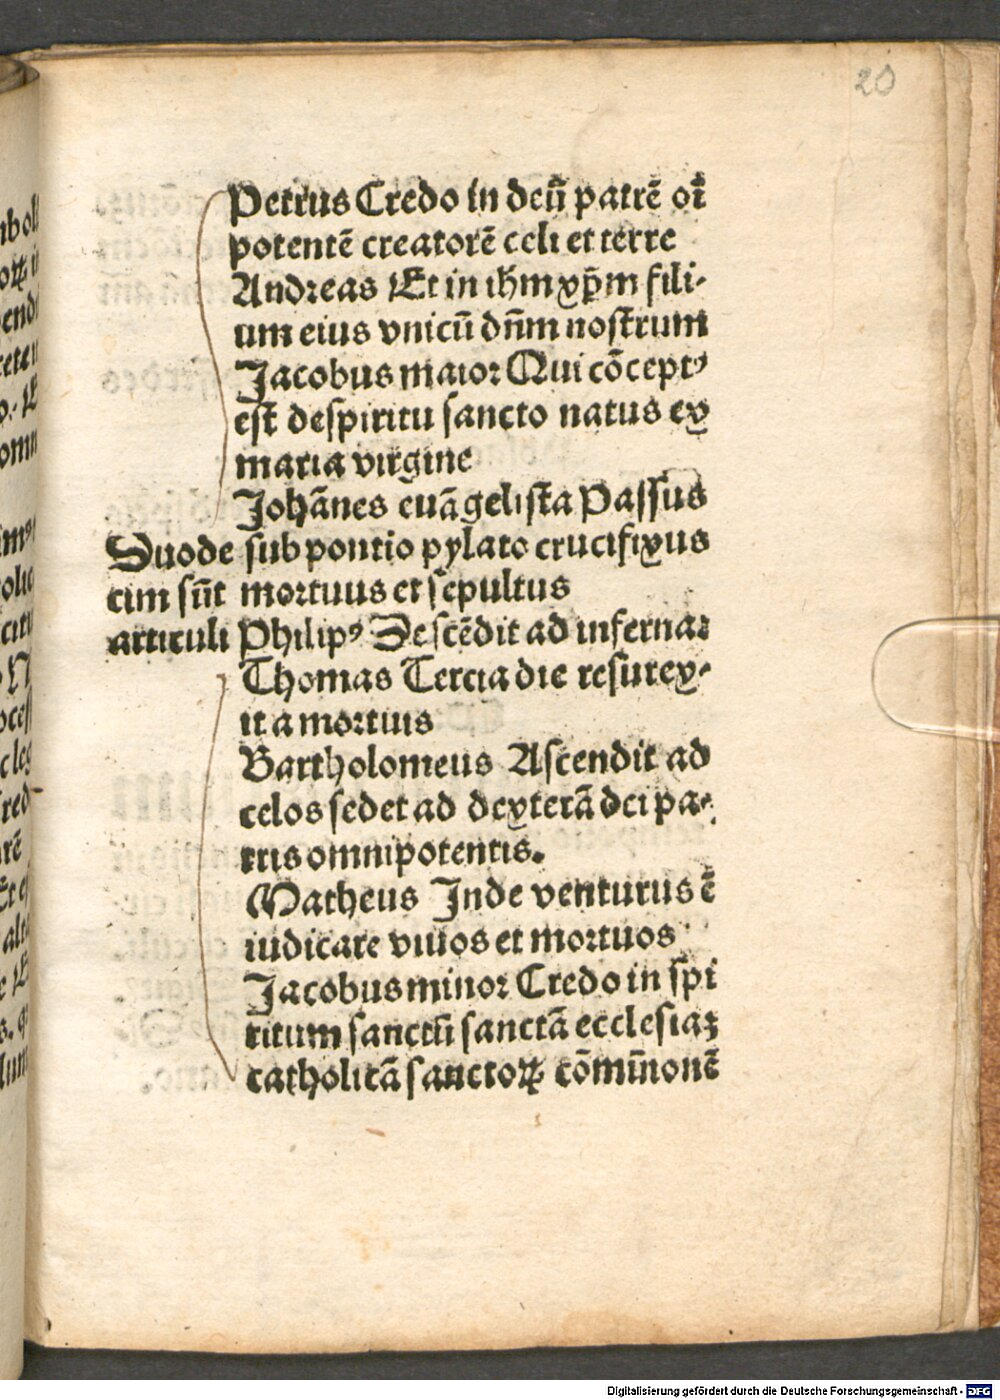 20
Petrus Credo in deū patrē oī
potentē creatorē celi et terre
Andreas Et in ihm xp̄m fili-
um eius vnicū dn̄m nostrum
Jacobus maior Qui cōceptꝰ
est despiritu sancto natus ex
maria virgine
Johānes euāgelista Passus
sub pontio pylato crucifixus
mortuus et sepultus
Duode
cim sūt
articuli
Philipꝰ Descēdit ad inferna:
Thomas Tercia die resurex-
it a mortuis
Bartholomeus Ascendit ad
celos sedet ad dexterā dei pa-
tris omnipotentis.
Matheus Inde venturus ē
iudicare viuos et mortuos
Jacobus minor Credo in spi
ritum sanctū sanctā ecclesiaꝫ
catholicā sanctoꝝ cōmīnonē
Digitalisierung gefördert durch die Deutsche Forschungsgemeinschaft - DFG